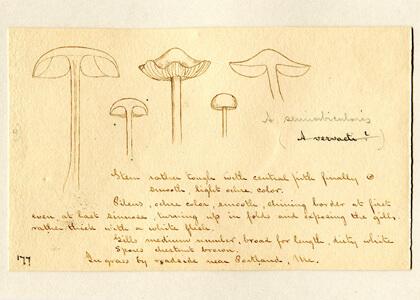 A semiorbicularis
(A vervacti?)
Stem rather tough with central pith finally
smooth, light ochre, color.
Pileus, ochre color, smooth, shining border at first
even at last sinuose, turning up in folds and exposing the gills,
rather thick with a white flesh.
Gills medium number, broad for length, dirty white
Spores chestnut brown.
177
In grass by roadside near Portland, Me.